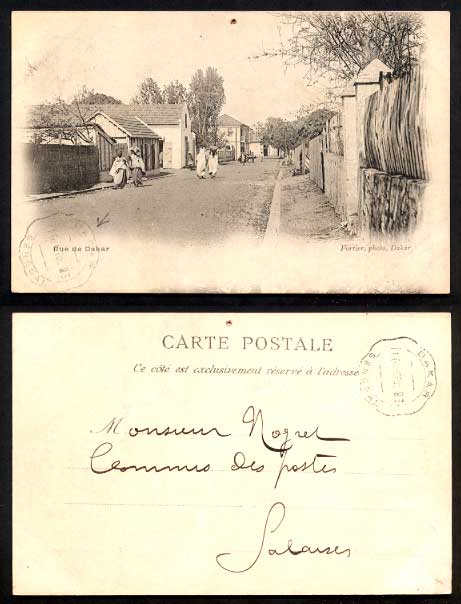 Rue de Dakar
Fortier, photo, Dakar
CARTE POSTALE
Ce côté est exclusivement réservé à l'adresse
DAKAR
Monsieur Nogret
Commis des postes
Salaises